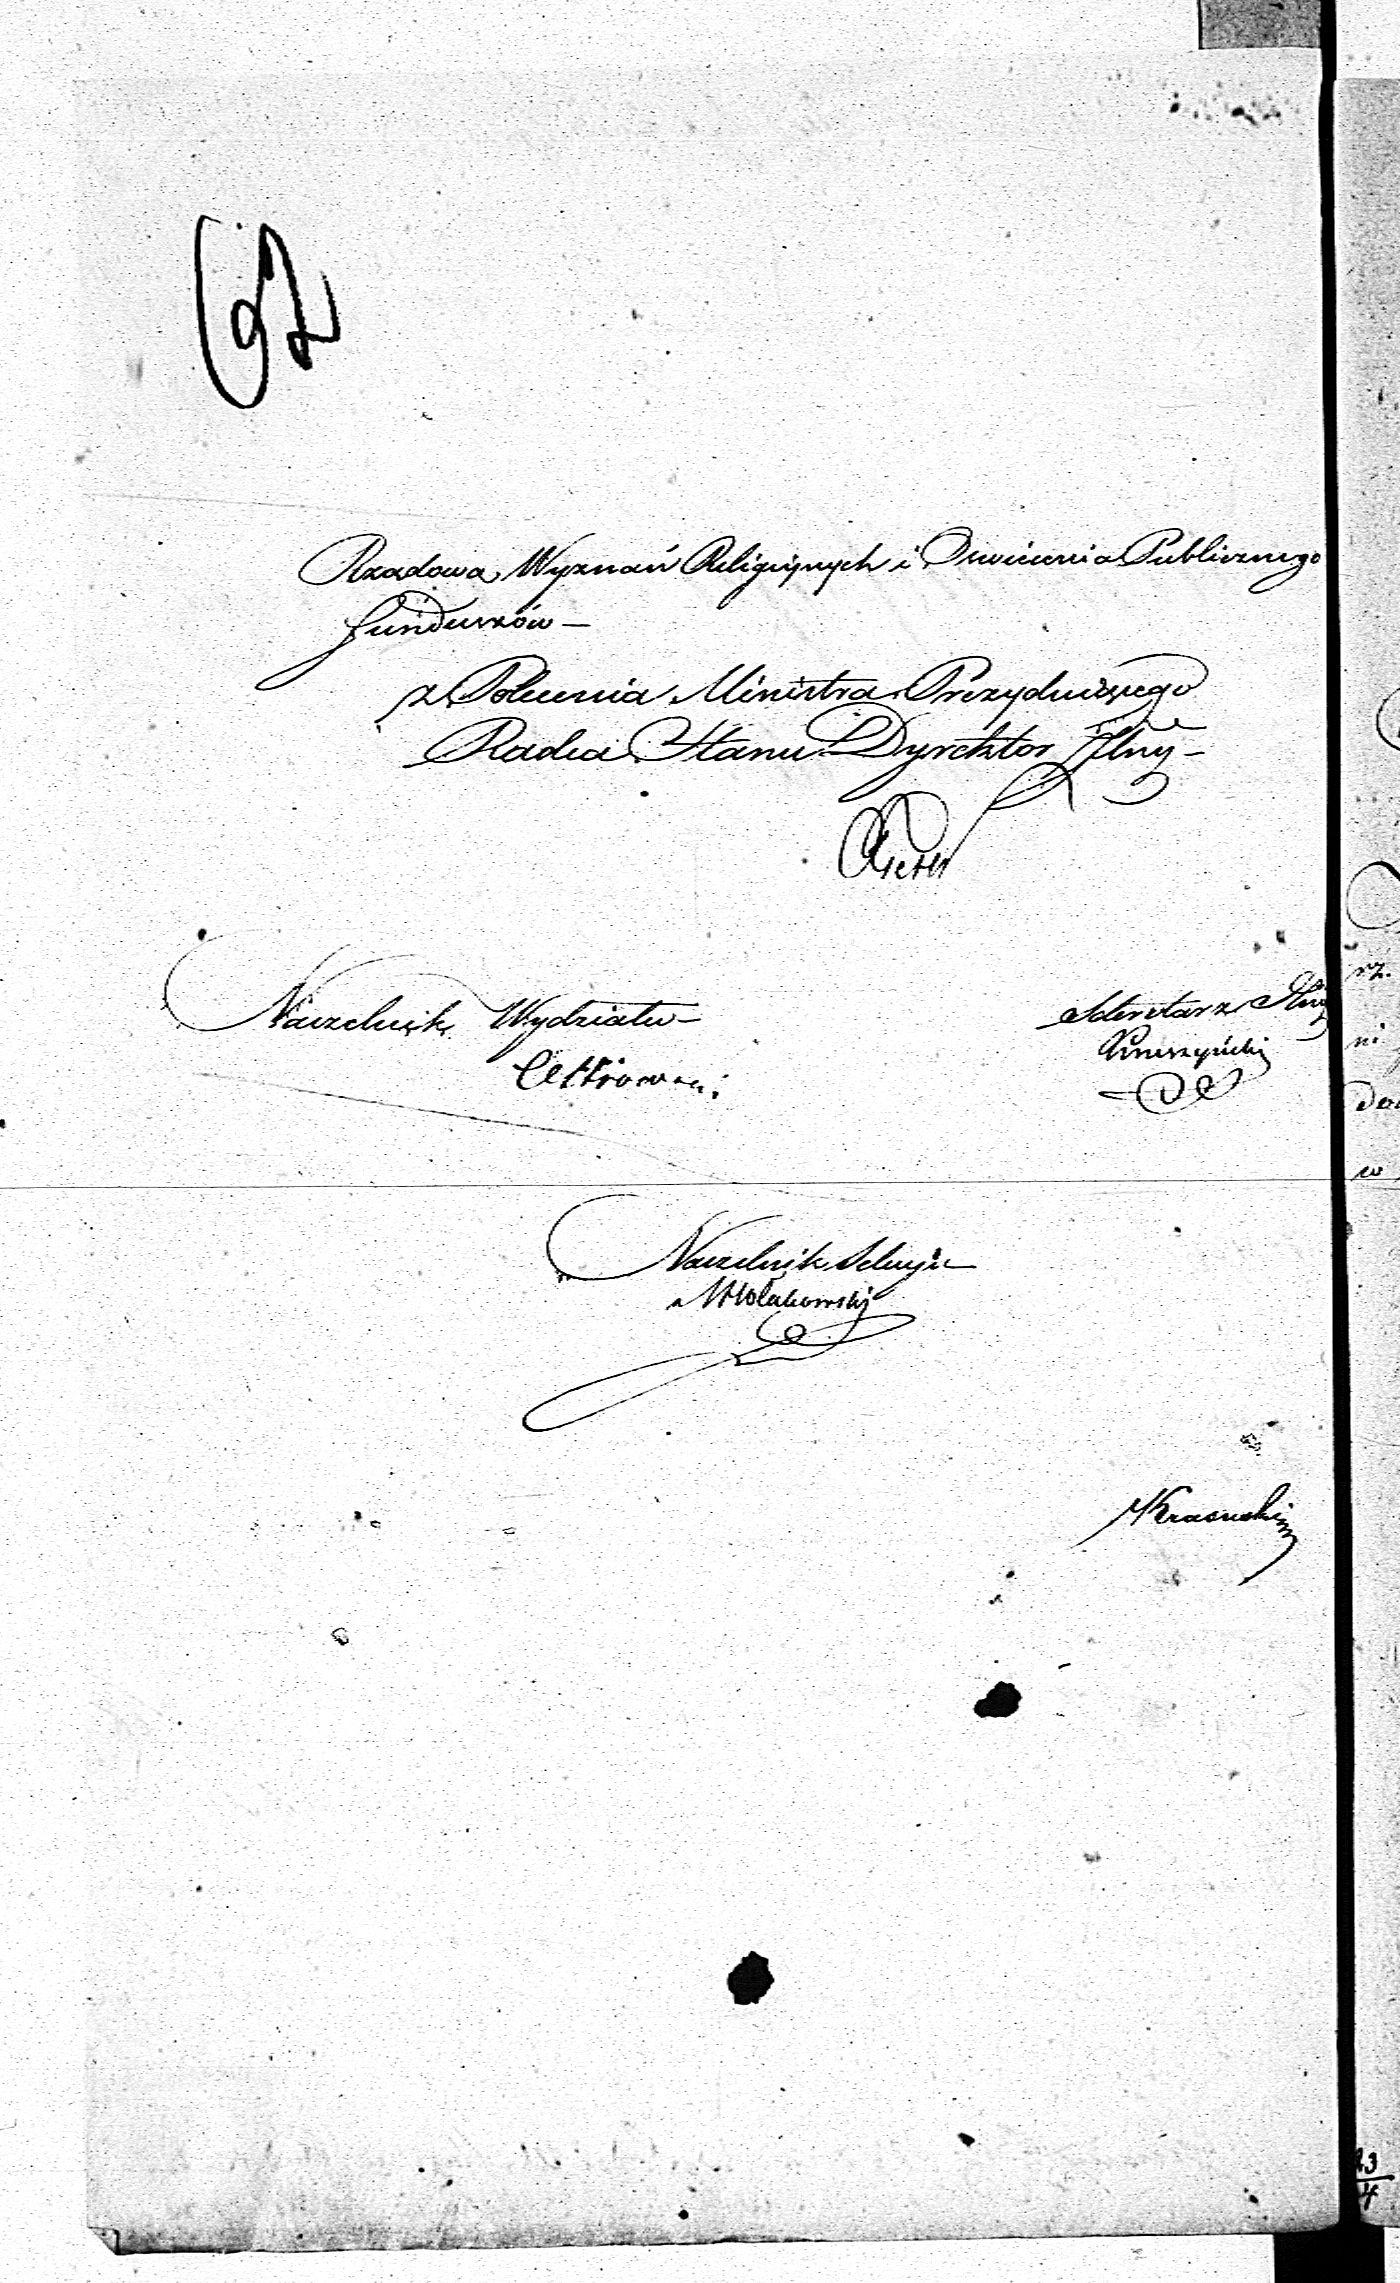 Rządowa Wyznań Religijnych i Oświecenia Publicznego
funduszów —
z Polecenia Ministra Prezydującego
Radca Stanu Dyrektor Jlny —
Naczelnik Wydziału —
Sekretarz Jlny
Naczelnik Sekcyi —
Krasuski
rz.
ni
w
23
4